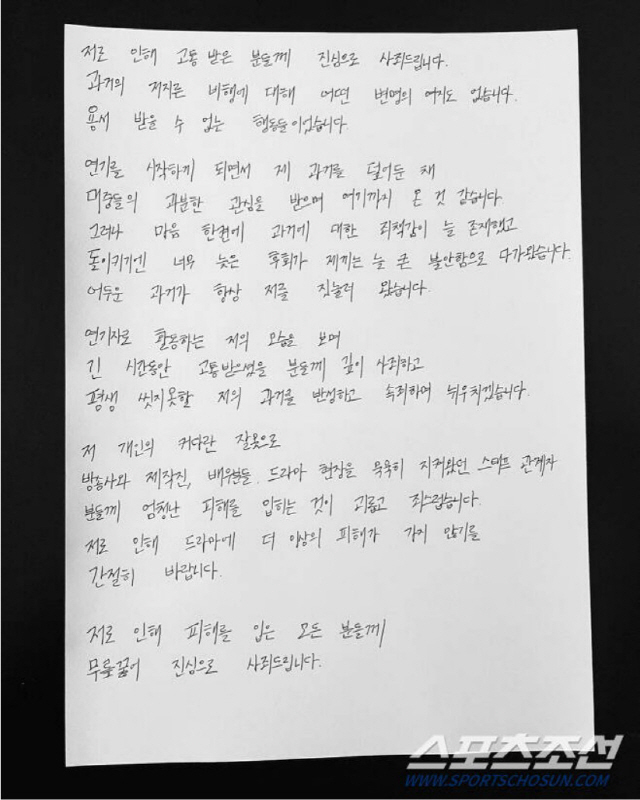 저로 인해 고통 받은 분들께 진심으로 사죄드립니다.
과거의 저지른 비행에 대해 어떤 변명의 여지도 없습니다.
용서 받을 수 없는 행동들이었습니다.
연기를 시작하게 되면서 제 과거를 덮어둔 채
대중들의 과분한 관심을 받으며 여기까지 온 것 같습니다.
그러나 마음 한켠에 과거에 대한 죄책감이 늘 존재했고
돌이키기엔 너무 늦은 후회가 제게는 늘 큰 불안함으로 다가왔습니다.
어두운 과거가 항상 저를 짓눌러 왔습니다.
연기자로 활동하는 저의 모습을 보며
긴 시간동안 고통받으셨을 분들께 깊이 사죄하고
평생 씻지못할 저의 과거를 반성하고 속죄하며 뉘우치겠습니다.
저 개인의 커다란 잘못으로
방송사와 제작진, 배우분들, 드라마 현장을 묵묵히 지켜왔던 스태프 관계자
분들께 엄청난 피해를 입히는 것이 괴롭고 죄스럽습니다.
저로 인해 드라마에 더 이상의 피해가 가지 않기를
간절히 바랍니다.
저로 인해 피해를 입은 모든 분들께
무릎꿇어 진심으로 사죄드립니다.
스포츠조선
WWW.SPORTSCHOSUN.COM